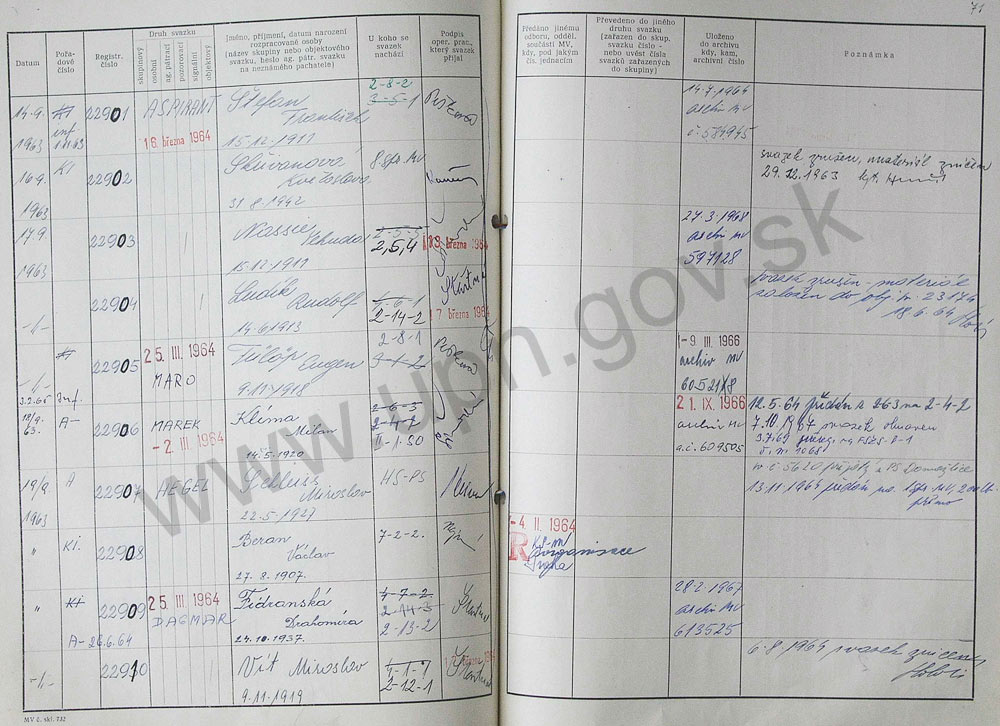 71
Datum
Pořa-
dové
číslo
Registr.
číslo
Druh svazku
skupinový
osobní
ag. pátrací
pozorovací
signální
objektový
Jméno, příjmení, datum narození
rozpracované osoby
(název skupiny nebo objektového
svazku, heslo ag. pátr. svazku
na neznámého pachatele)
U koho se
svazek
nachází
Podpis
oper. prac.,
který svazek
přijal
Předáno jinému
odboru, odděl.
součásti MV,
kdy, pod jakým
čís. jednacím
Převedeno do jiného
druhu svazku
(zařazen do skup.
svazku číslo -
nebo uvést čísla
svazků zařazených
do skupiny)
Uloženo
do archivu
kdy, kam,
archivní číslo
Poznámka
14.9.
1963
KI
22901
ASPIRANT
16 března 1964
Štefan
František
15.12.1911
2-8-2
3-5-1
14.7.1964
archiv MV
č. 584945
16.9.
1963
KI
22902
Skřivanová
Květoslava
31.8.1942
svazek zrušen, materiál zničen
29.12.1963
17.9.
1963
22903
Nassie
Jehuda
15.12.1911
2-5-3
2,5,4
března 1964
27.3.1968
archiv MV
597128
-//-
22904
Ludík
Rudolf
14.6.1913
2-14-2
17 března 1964
svazek zrušen - materiál
založen do obj. sv. 23174
18.6.64
-//-
KI
22905
25. III. 1964
MARO
Fülöp
Eugen
9.11.1918
2-8-1
3-1-2
1-9. III. 1966
archiv MV
3.2.65
Inf.
18/9.
63.
A-
22906
MAREK
-2. III. 1964
Klíma
Milan
14.5.1920
2-6-3
2-4-2
11-1.50
21. IX. 1966
archiv MV
a.č. 609505
12.5.64 přidán k 263 na 2-4-2
7.10.1967 svazek obnoven
3.7.69
18/9
1963
A
22907
HEGEL
Miroslav
22.5.1927
HS-PS
13.11.1964 přidán na
přímo
"
KI.
22908
Beran
Václav
27.8.1907.
7-2-2.
-4. II. 1964
R
reorganisace
"
KI
A- 26.6.64
22909
25. III. 1964
DAGMAR
Fidranská
Drahomíra
24.10.1937.
4-7-2
2-14-3
2-13-2
28.2.1967
archiv MV
613525
-//-
22910
Vít Miroslav
9.11.1919
1-1-7
2-12-1
6.8.1964 svazek zničen
MV č. skl. 732
www.upn.gov.sk